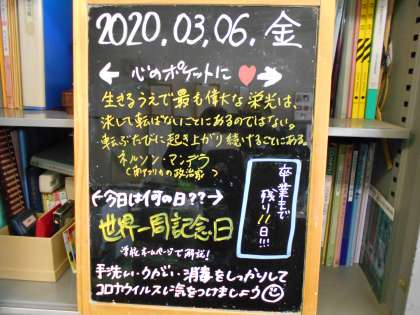 2020.03.06.金
← 心のポケットに ❤ →
生きるうえで最も偉大な栄光は、
決して転ばないことにあるのではない。
転ぶたびに起き上がり続けることにある。
ネルソン・マンデラ
(南アフリカの政治家)
←今日は何の日??→
世界一周記念日
学校ホームページで解説!
卒業まで
残り11日!!!
手洗い・うがい・消毒をしっかりして
コロナウイルスに気をつけましょう☺